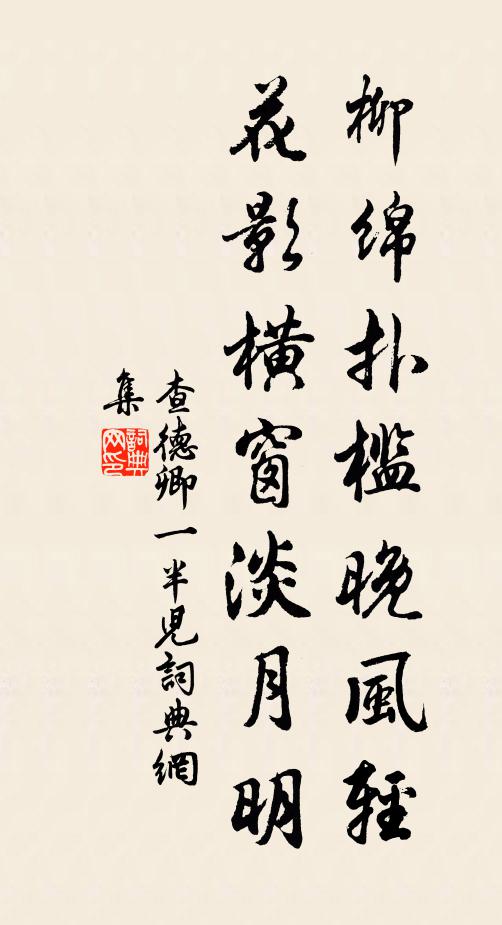 柳绵扑槛晚風輕
花影横窗淡月明
查德卿一半児詞典網
集
詞典網印